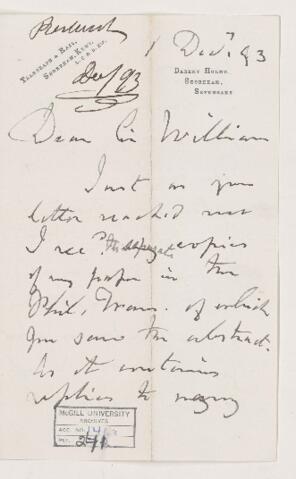 Prestwich
TELEGRAPH & RAIL,
SHOREHAM, KENT,
L.C.& D. Ry.
Dec/93
1 Decr 93
DARENT HULME,
SHOREHAM,
SEVENOAKS
Dear Sir William
Just as your
letter reached me
I recd the separate copies
of my paper in the
Phil. Trans. of which
you saw the abstract.
As it contains
replies to many
McGILL UNIVERSITY
ARCHIVES
ACC. NO.
REF.